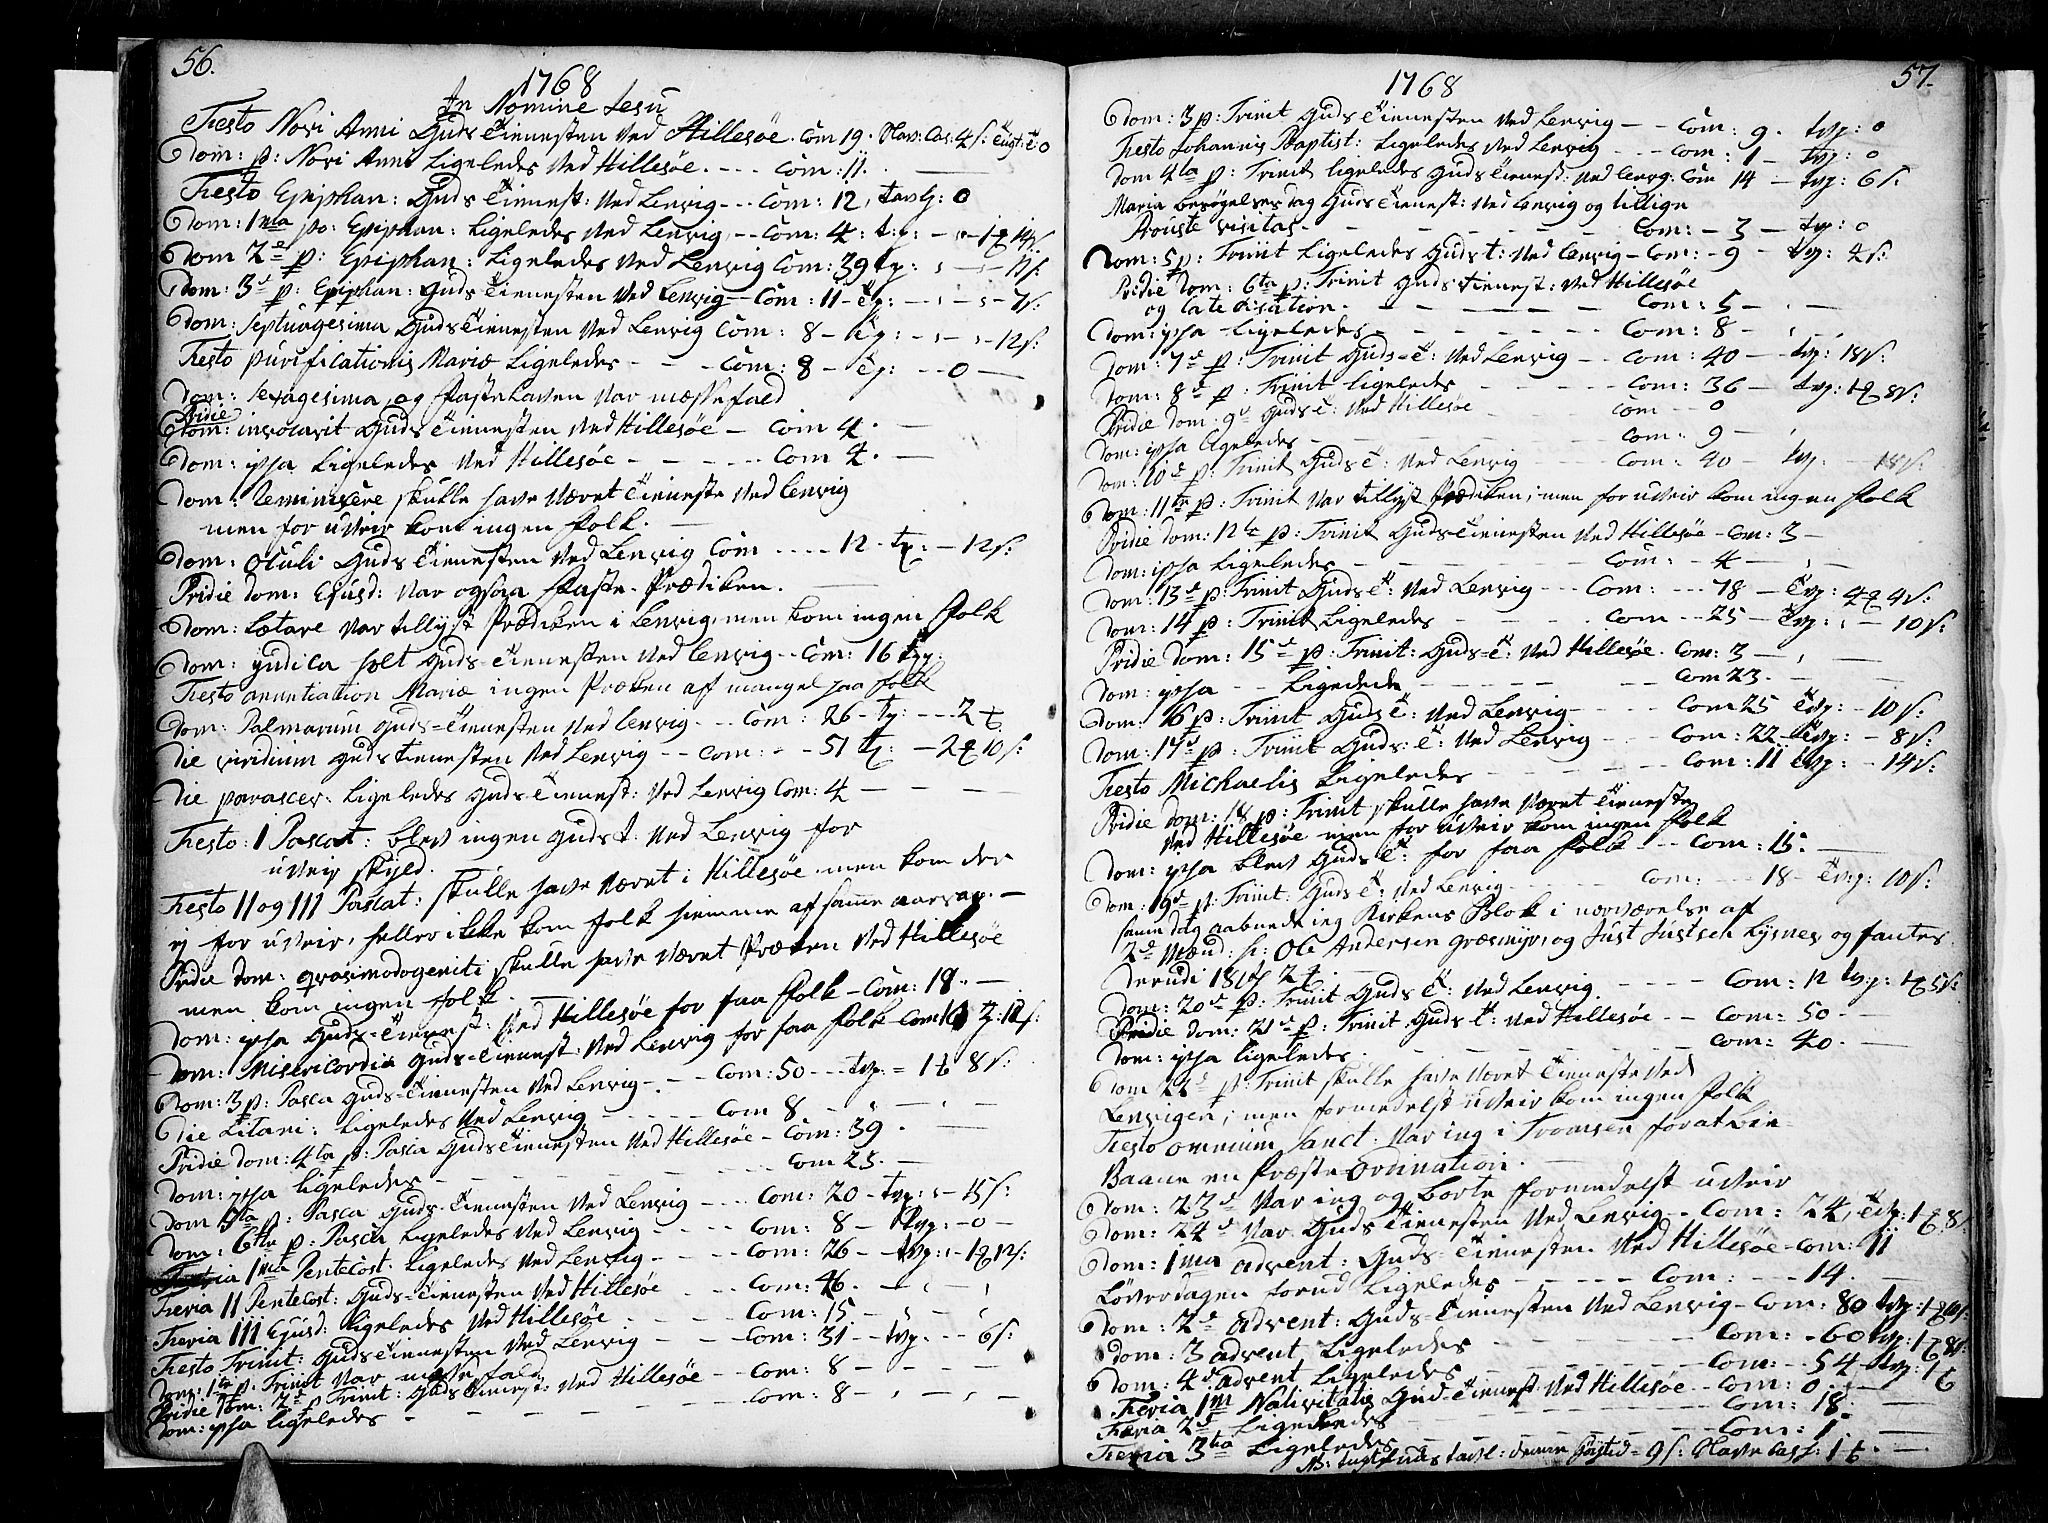 56.
1768
In Nomine Jesu
Festo Novi Anni Guds Tienesten ved Hillesöe. Com 19.
Dom: p: Novi Anni Ligeledes ved Hillesöe. --- Com: 11.
Festo Epiphan: Guds Tienest: ved Lenvig --- Com: 12, tavl: 0
Dom: 1ma po: Epiphan: Ligeledes ved Lenvig -- Com: 4: t:p:
Dom 2de p: Epiphan: Ligeledes ved Lenvig Com: 39 tp:
Dom: 3de p: Epiphan: Guds Tienesten ved Lenvig -- Com: 11 - tp: - 7 s:
Dom: Septuagesima Guds Tienesten ved Lenvig Com: 8 - tp: - 12 s:
Festo purificationis Mariæ Ligeledes - - - Com: 8 - tp: -- 0 -
Dom: Sexagesima, og fastelaven var messefald
Pridie Dom: invocavit Guds Tienesten ved Hillesöe - Com 4. -
Dom: ipsa Ligeledes ved Hillesöe - - - - - Com 4. -
Dom: Reminiscere skulle have været Tieneste ved Lenvig
men for uveir kom ingen folk. -
Dom: Oculi Guds Tienesten ved Lenvig Com ---- 12 - tp: - 12 s:
Pridie dom: Ejusd: var ogsaa faste-Prædiken.
Dom: Lætare var tillyst Prædiken i Lenvig, men kom ingen folk
Dom: Judica holt Guds-Tienesten ved Lenvig -- Com: 16 tp:
Festo anuntiation Mariæ ingen Præken af mangel paa folk
Dom: Palmarum Guds-Tienesten ved Lenvig -- Com: 26 - tp: --- 2
Die viridium Guds tienesten ved Lenvig -- Com: - - 51 tp: - 2 10 s:
Die parascev: Ligeledes Guds Tienest: ved Lenvig Com: 4 - - -
Festo: I Pascat: blev ingen Guds t: ved Lenvig for
uveirs skyld.
Festo II og III Pascat: skulle have været i Hillesöe men kom der
ej for uveir, heller ikke kom folk hiemme af samme aarsag. -
Pridie dom: qvasimodogeniti skulle have været Præken ved Hillesöe
men kom ingen folk. -
Dom: ipsa Guds-Tienest: ved Hillesöe for faa folk - Com: 18. -
Dom: Misericordia Guds-Tienest: ved Lenvig for faa folk
Dom: 3 p: Pasca Guds-Tienesten ved Lenvig - - Com: 50 --- tvp: = 1 8 s:
Die Litani: Ligeledes ved Lenvig - - - - - Com 8
Pridie dom: 4ta p: Pasca Guds Tienesten ved Hillesöe - Com: 39.
Dom: ipsa ligeledes - - - - - - Com 25. -
Dom 5ta p: Pasca Guds-Tienesten ved Lenvig --- Com: 20 - tvp: - 15 s:
Dom: 6te p: Pasca Ligeledes ved Lenvig - - - Com: 8 - tvp: - 0 -
Feria 1ma Pentecost. Ligeledes ved Lenvig - - - Com: 26 -- tvp: - 1 12 s:
Feria II Pentecost: Guds-Tienesten ved Hillesöe - - - Com: 46. -
Feria III Ejusd: Ligeledes ved Hillesöe - - - - Com: 15 -
Festo Trinit: Guds Tienesten ved Lenvig - - - Com: 31 -- tvp: -- 6 s:
Dom: 1te p: Trinit var messefald
Pridie Dom: 2de p Trinit: Guds Tienest: ved Hillesöe -- Com: 8 - - -
Dom: ipsa ligeledes - - - - - - Com: 8 -
57.
1768
Dom: 3 p: Trinit Guds Tienesten ved Lenvig - - Com: 9. tvp: 0
Festo Johannis Baptist: Ligeledes ved Lenvig --- Com: 1 - tvp: 0
Dom 4ta p: Trinit ligeledes Guds Tienest: ved Lenvig. Com 14 - tvp: 6 s:
Maria besøgelses dag Guds Tienest: ved Lenvig og tillige
Prouste visitas - - - - - Com: - 3 - tvp: 0
Dom: 5 p: Trinit Ligeledes Guds t: ved Lenvig - Com: - 9 - tvp: 4 s:
Pridie Dom: 6ta p: Trinit Guds Tienest: ved Hillesöe
og Catechisation. - - - - - Com: 5 -
Dom: ipsa ligeledes - - - - - Com: 8 -
Dom: 7de p: Trinit Guds-t: ved Lenvig -- Com: 40 - tvp: 18 s:
Dom: 8de p: Trinit ligeledes - - - - Com: 36 - tvp: 1 8 s:
Pridie Dom: 9de Guds t: ved Hillesöe - - - Com - - 0
Dom: ipsa ligeledes - - - - - Com: 9 -
Dom: 10de p: Trinit Guds t: ved Lenvig --- Com: 40 - tvp: 18 s:
Dom: 11te p: Trinit var tillyst Prædiken; men for uveir kom ingen folk
Pridie Dom: 12te p: Trinit Guds-Tienesten ved Hillesöe - Com: 3 -
Dom: ipsa Ligeledes - - - - - Com: - 4 -
Dom: 13de p: Trinit Guds t: ved Lenvig --- Com: --- 78 - tvp: 4 4 s:
Dom: 14 p: Trinit Ligeledes - - - - Com -- 25 - tvp: - 10 s:
Pridie Dom: 15de p: Trinit: Guds-t: ved Hillesöe. Com: 3 -
Dom: ipsa -- Ligeledes - - - - - Com 23. -
Dom: 16 p: Trinit Guds t: ved Lenvig - - - - Com 25 tvp: - 10 s:
Dom: 17de p: Trinit Guds t: ved Lenvig --- Com: 22 - tvp: - 8 s:
Festo Michaelis Ligeledes - - - - - Com: 11 tvp: - 14 s:
Pridie Dom: 18 p: Trinit skulle have været Tieneste
ved Hillesöe men for uveir kom ingen folk
Dom: ipsa blev Guds t: for faa folk -- Com: 15: -
Dom: 19de p: Trinit: Guds t: ved Lenvig - - - - Com: --- 18 - tvp: 10 s:
samme dag aabnede ieg Kirkens Blok i nærværelse af
2de Mænd: s: Ole Andersen græsmyr, og Just Justsen Lysnes, og fantes
derudi
Dom: 20de p: Trinit Guds t: ved Lenvig - - - - Com: 12 tvp: 1 5 s:
Pridie Dom: 21de p: Trinit Guds t: ved Hillesöe -- Com: 50 - -
Dom: ipsa ligeledes. - - - - - Com: 40. -
Dom 22de p: Trinit skulle have været Tieneste ved
Lenvigen; men formedelst uveir kom ingen folk
Festo omnium Sanct: var ieg i Tromsen for at bie-
Baane en Præste Ordination.
Dom: 23de var ieg og borte formedelst uveir
Dom: 24de var Guds Tienesten ved Lenvig -- Com: 24, tvp: 1 8 s:
Dom: 1ma advent: Guds-Tienesten ved Hillesöe - Com: 11
Löverdagen forud Ligeledes - - - - Com: --- 14.
Dom: 2de advent: Guds-Tienesten ved Lenvig - Com: 80
Dom: 3 advent Ligeledes - - - - Com: - 60 tvp: 1 8 s:
Dom: 4de advent Ligeledes - - - - Com: -- 54 tvp: 1
Feria 1m Nativitatis Gud-Tienest: ved Hillesöe -- Com: 0. -
Feria 2de Ligeledes - - - - - Com: 18. -
Feria 3tia Ligeledes - - - - - Com: 1. -